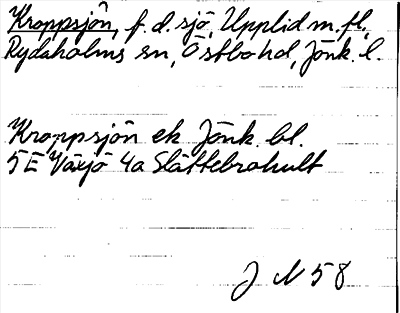 Kroppsjön, f. d. sjö, Upplid m. fl.,
Rydaholms sn, Östbo hd, Jönk. l.
Kroppsjön ek Jönk. bl.
5E Växjö 4a Slättebrohult
J N 58